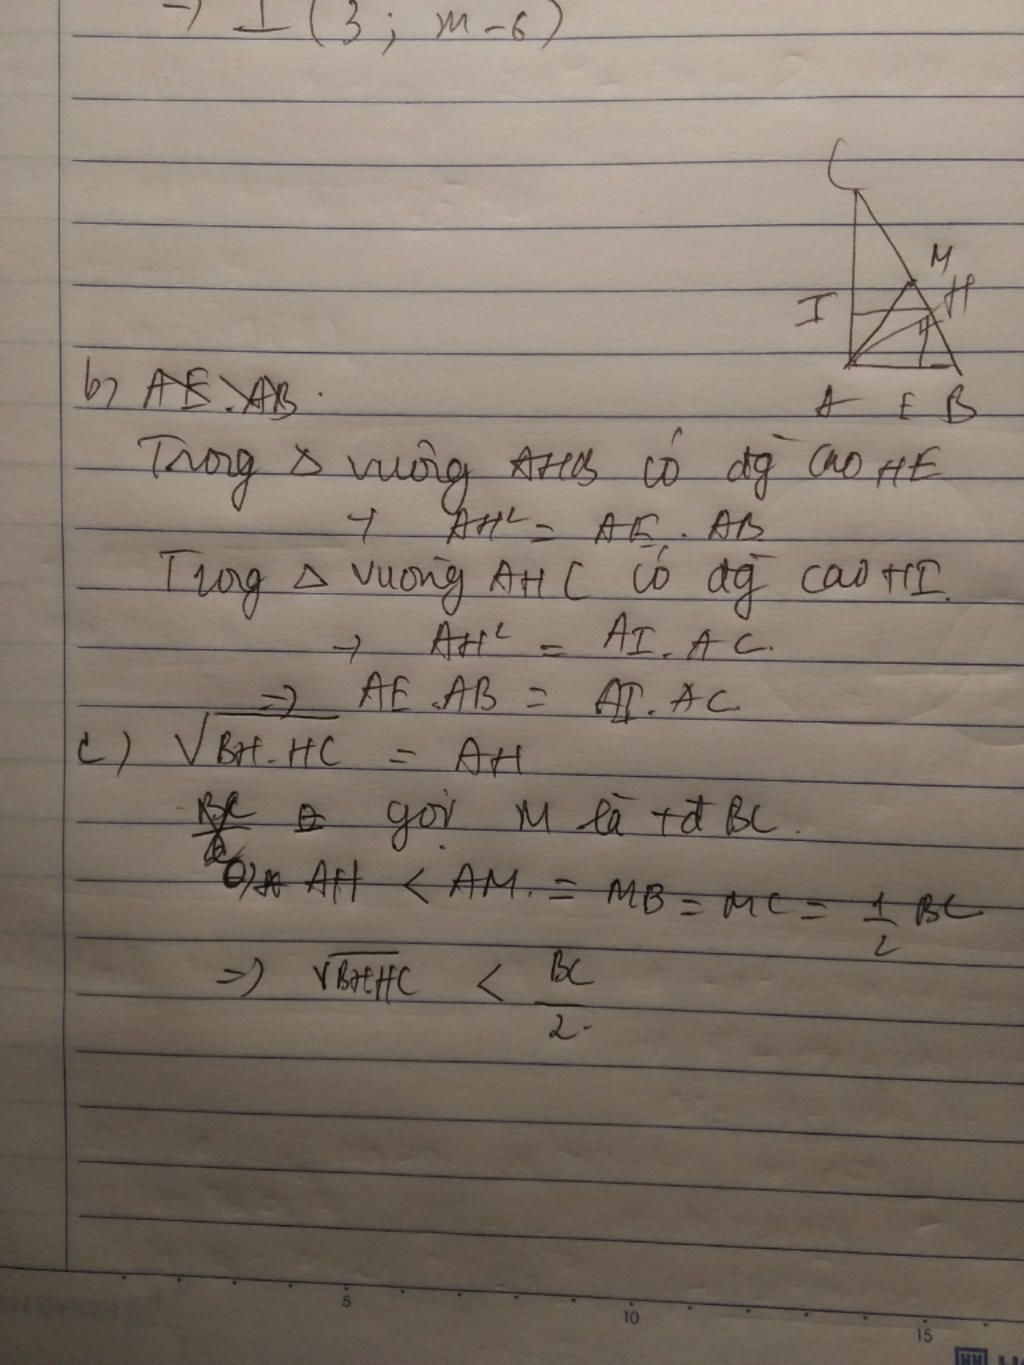 → I (3 ; m-6)
C
M
H
I
A E B
b) AE.AB.
Trong △ vuông AHB có đg cao HE
→ AH² = AE . AB
Trong △ vuông AHC có đg cao HI.
→ AH² = AI . AC.
⇒ AE . AB = AI . AC
c) √BH.HC = AH
gọi M là tđ BC.
AH < AM. = MB = MC = 1/2 BC
⇒ √BH.HC < BC/2.
5 10 15
HH